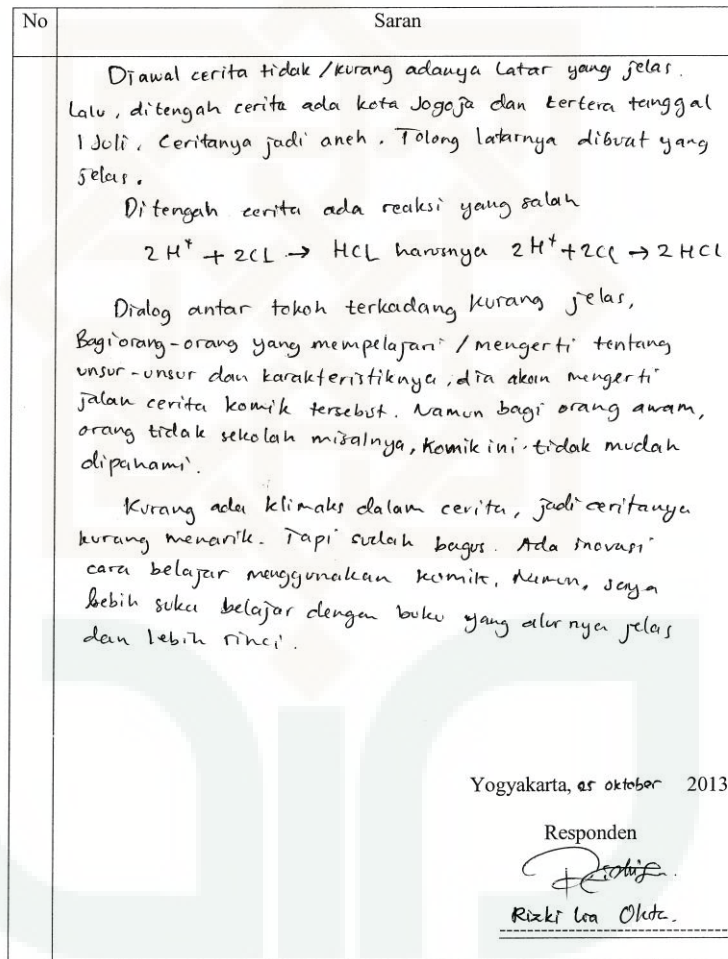 No Saran
Diawal cerita tidak / kurang adanya Latar yang jelas.
Lalu, ditengah cerita ada kota Jogoja dan tertera tanggal
1 Juli, Ceritanya jadi aneh. Tolong latarnya dibuat yang
jelas.
Ditengah cerita ada reaksi yang salah
2 H⁺ + 2CL → HCL harusnya 2 H⁺ + 2Cl → 2 HCL
Dialog antar tokoh terkadang kurang jelas,
Bagi orang-orang yang mempelajari / mengerti tentang
unsur-unsur dan karakteristiknya, dia akan mengerti
jalan cerita komik tersebut. Namun bagi orang awam,
orang tidak sekolah misalnya, komik ini tidak mudah
dipahami.
Kurang ada klimaks dalam cerita, jadi ceritanya
kurang menarik. Tapi sudah bagus. Ada inovasi
cara belajar menggunakan komik, Namun, saya
lebih suka belajar dengan buku yang alurnya jelas
dan lebih rinci.
Yogyakarta, 05 oktober 2013
Responden
Rizki